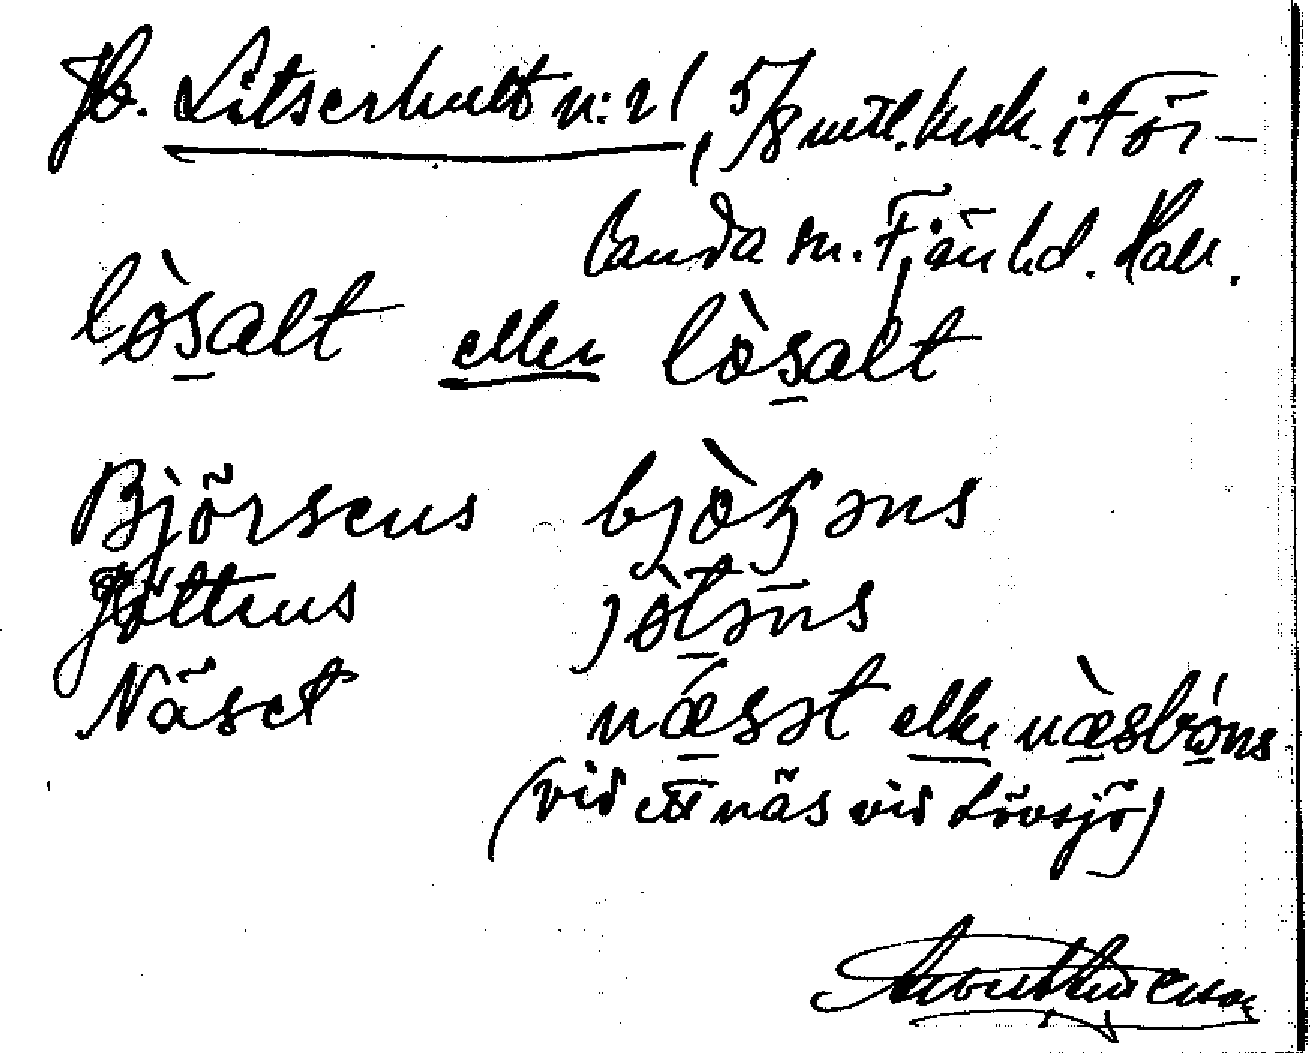 Hb. Litserhult n:r 1, 5/8 mtl. krsk. i För-
landa sn. Fjäre hd. Hall.
lòsalt eller lòsalt
Björsens bjòꜧəns
Göttens jòtəns
Näset næsət eller næsbrơns
(vid ett näs vid Lövsjö)